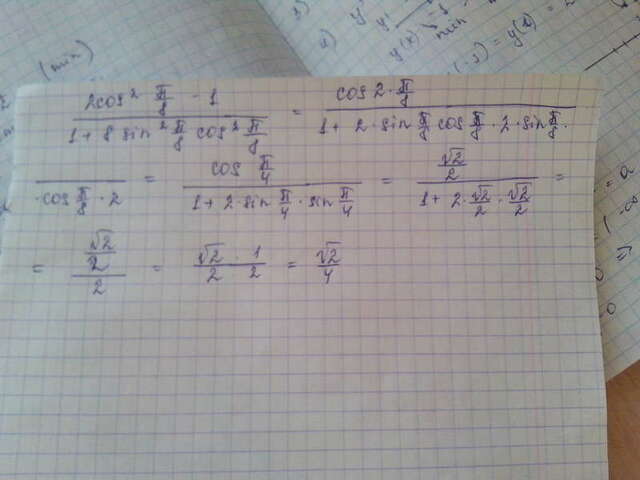 (min)
3) y
y'
a) y(x)
min
(-3) = y(2) =
(2cos² π/8 - 1)/(1 + 8 sin² π/8 cos² π/8) = (cos 2 · π/8)/(1 + 2 · sin π/8 cos π/8 · 2 · sin π/8 ·
/(· cos π/8 · 2) = (cos π/4)/(1 + 2 · sin π/4 · sin π/4) = (√2/2)/(1 + 2 · √2/2 · √2/2) =
= (√2/2)/2 = √2/2 · 1/2 = √2/4